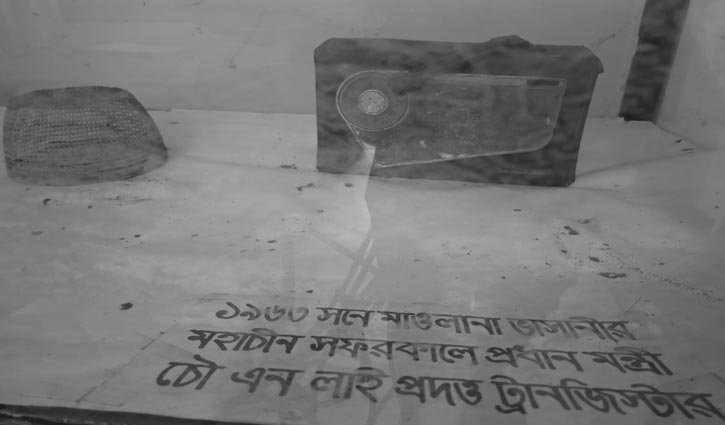 ১৯৬৩ সনে মাওলানা ভাসানীর
মহাচীন সফরকালে প্রধান মন্ত্রী
চৌ এন লাই প্রদত্ত ট্রানজিস্টার